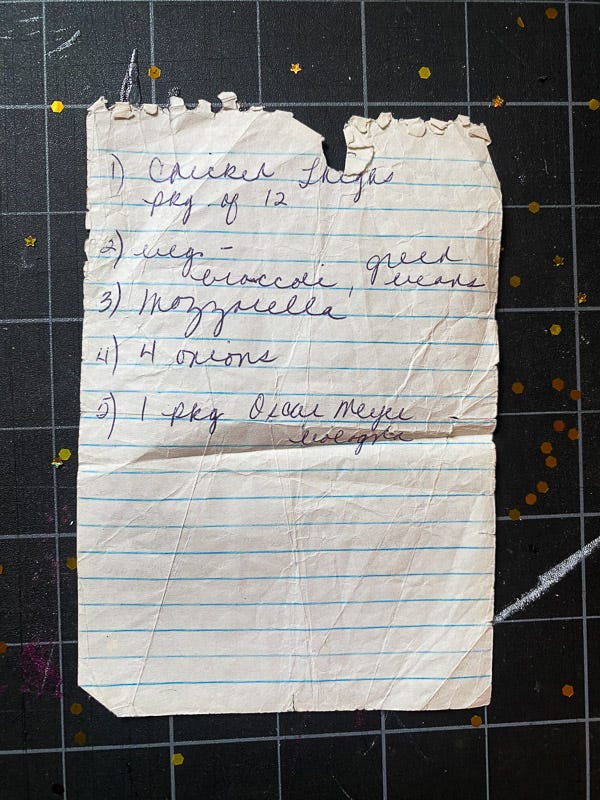 1) Chicken Thighs
pkg of 12
2) veg -
broccoli, green beans
3) Mozzarella
4) 4 onions
5) 1 pkg Oscar Meyer -
bologna